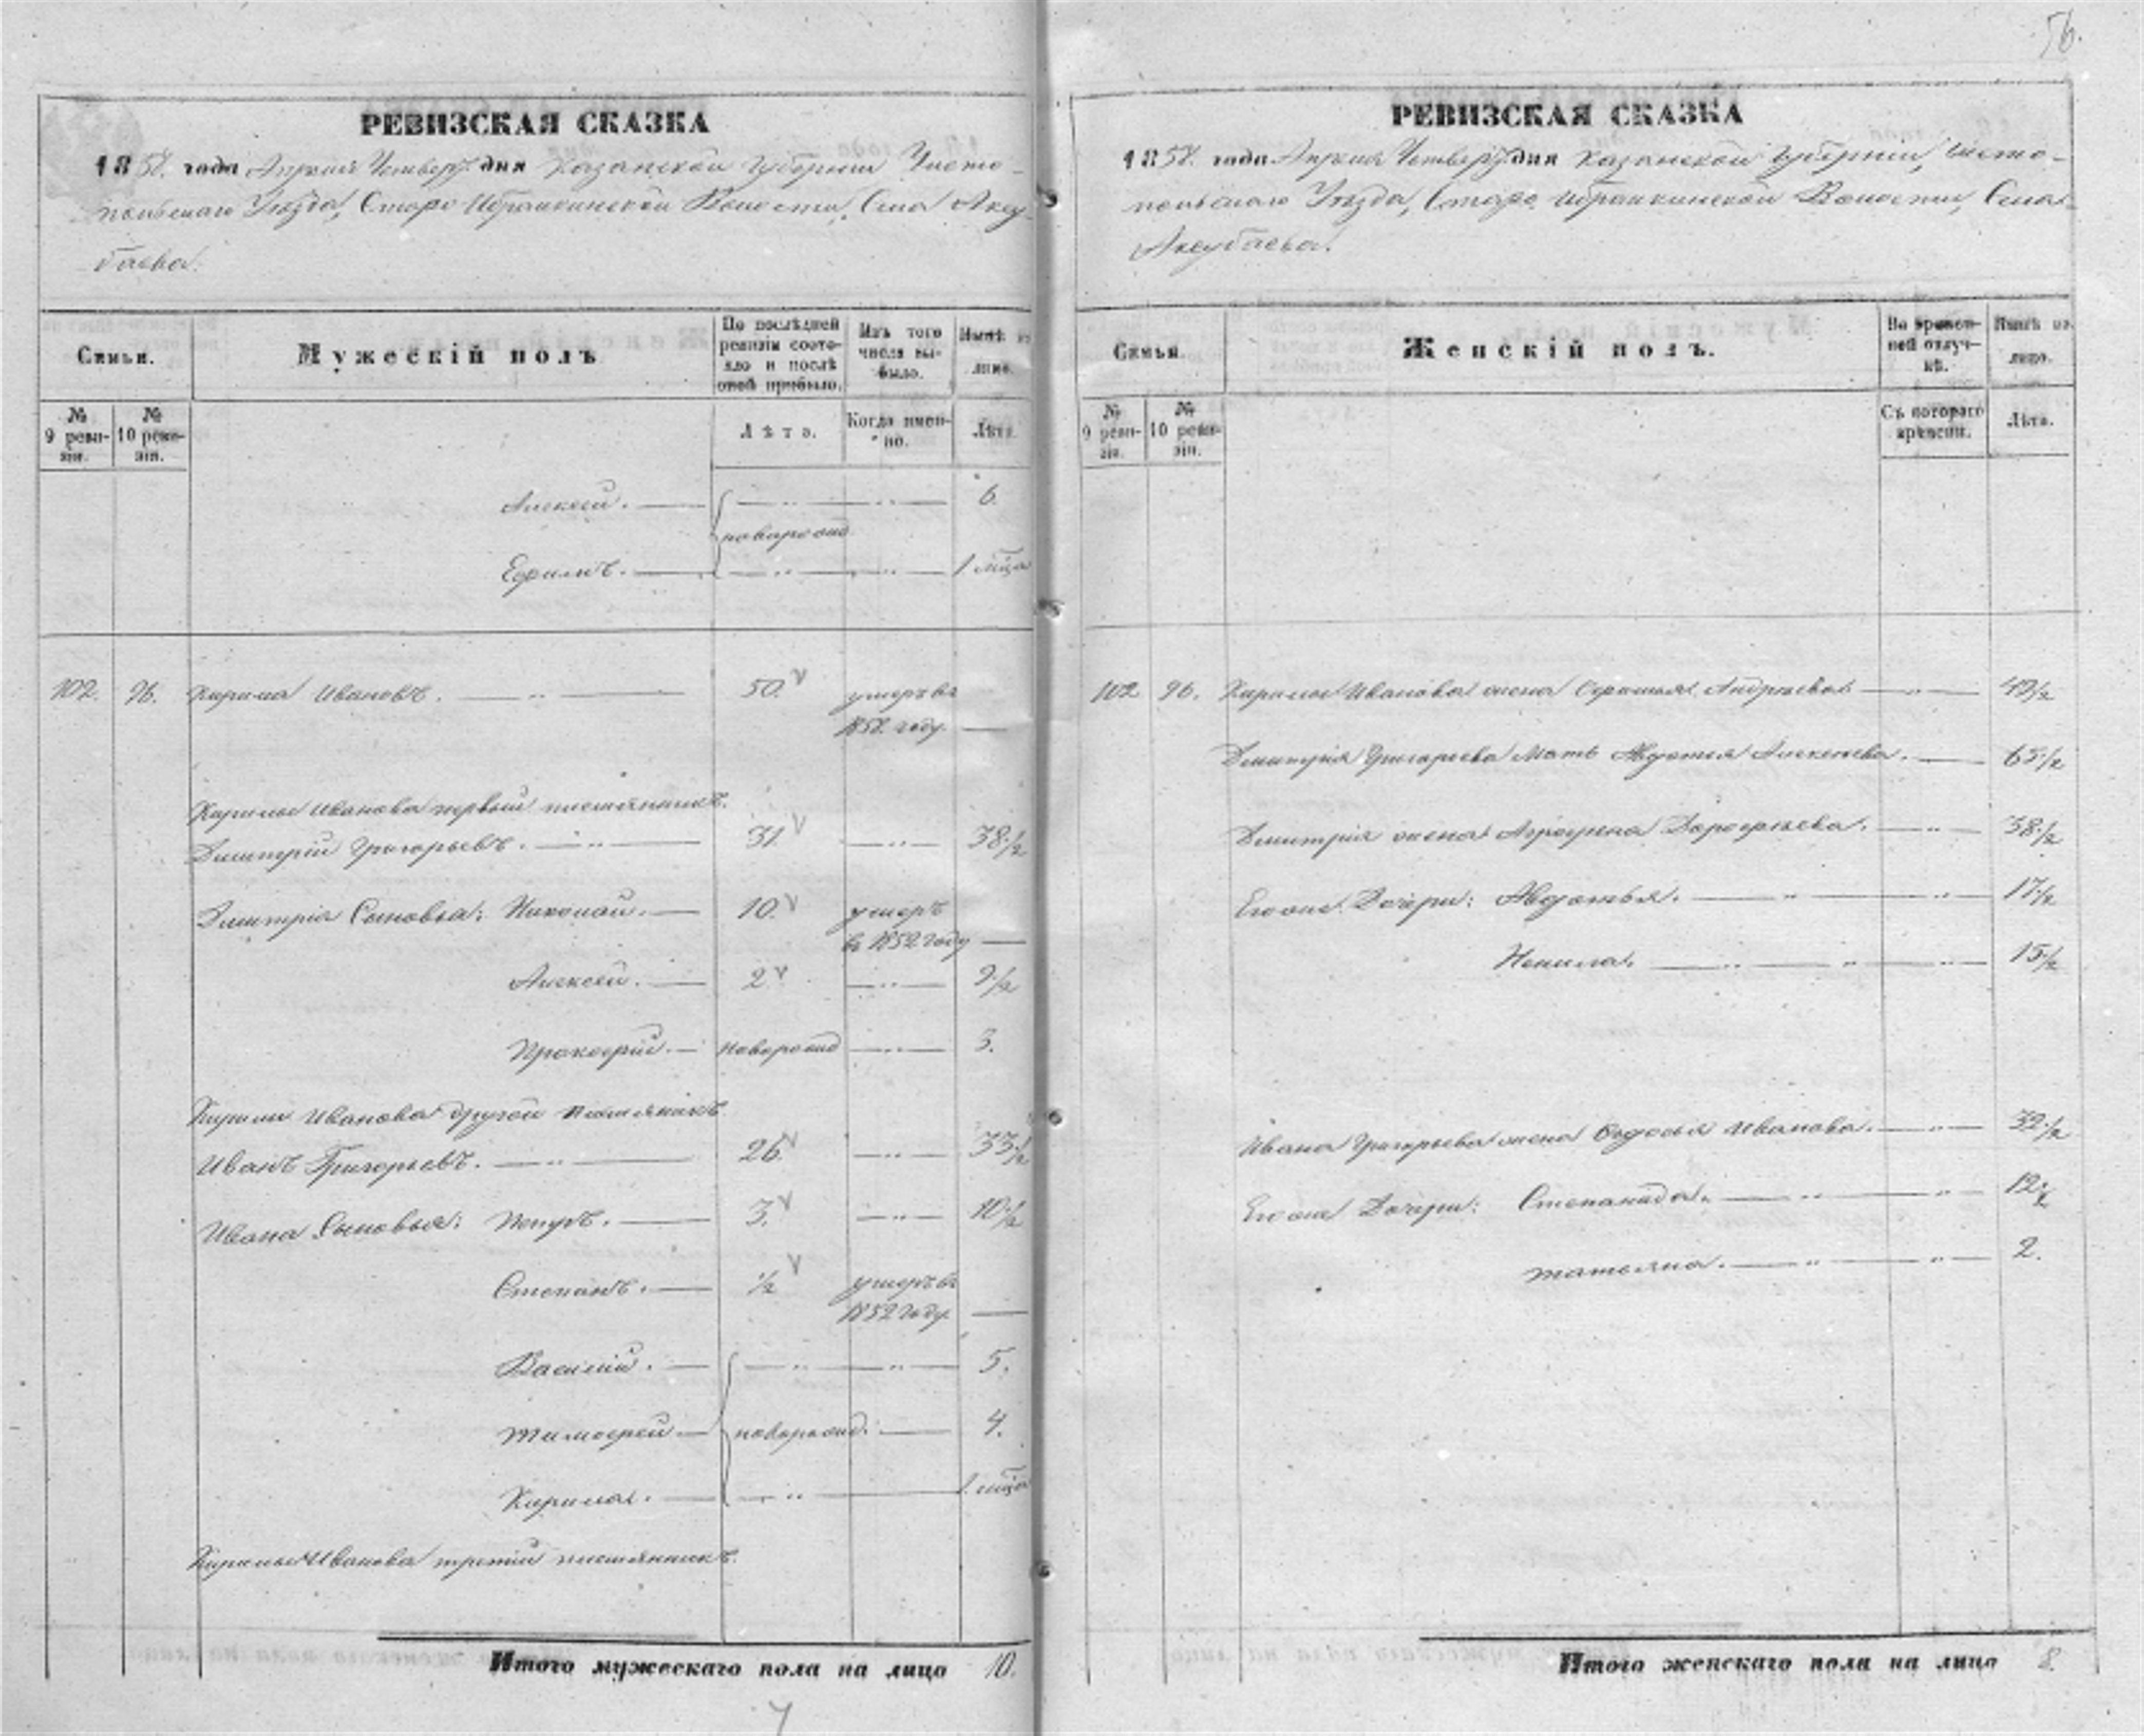 56.
РЕВИЗСКАЯ СКАЗКА
1858. года Апреля Четверт. дня Казанской Губернии Чисто-
польскаго Уезда, Старо Ибрайкинской Волости, Села Аксу-
баева.
Семьи.
Мужескій полъ
По послѣдней ревизіи состояло и послѣ оной прибыло.
Изъ того числа выбыло.
Нынѣ на лицо.
№ 9 ревизіи.
№ 10 ревизіи.
Лѣта.
Когда именно.
Лѣта.
Алексей. 6.
новорожд
Ефимъ. 1 мца
102. 96. Кирила Ивановъ. 50. умеръ въ
1858. году.
Кирилы Иванова первый племянникъ.
Дмитрій Григорьевъ. 31 38½
Дмитрія Сыновья: Николай. 10. умеръ
въ 1852 году
Алексей. 2 9½
Прокофій. новорожд 3.
Кирилы Иванова другой племяникъ
Иванъ Григорьевъ. 26. 33½
Ивана Сыновья: Петръ. 3. 10½
Степанъ. ½ умеръ въ
1852 году.
Василій. 5.
Тимофей новорожд. 4.
Кирила. 1 мца
Кирилы Иванова третій племянникъ.
Итого мужескаго пола на лицо 10.
РЕВИЗСКАЯ СКАЗКА
1858. года Апреля Четверт. дня Казанской Губерніи, Чисто-
польскаго Уезда, Старо Ибрайкинской Волости, Села
Аксубаева.
Семьи.
Женскій полъ.
Во временной отлучкѣ.
Нынѣ на лицо.
№ 9 ревизіи.
№ 10 ревизіи.
Съ котораго времени.
Лѣта.
102 96. Кирилы Иванова жена Андреева 49½
Дмитрія Григорьева Мать Авдотья Алексеева. 65½
Дмитрія жена Агрофена Дорофеева. 38½
Егоже Дочери: Авдотья. 17½
Ненила. 15½
Ивана Григорьева жена Федосья Иванова. 32½
Егоже Дочери: Степанида. 12½
Татьяна. 2.
Итого женскаго пола на лицо 8.